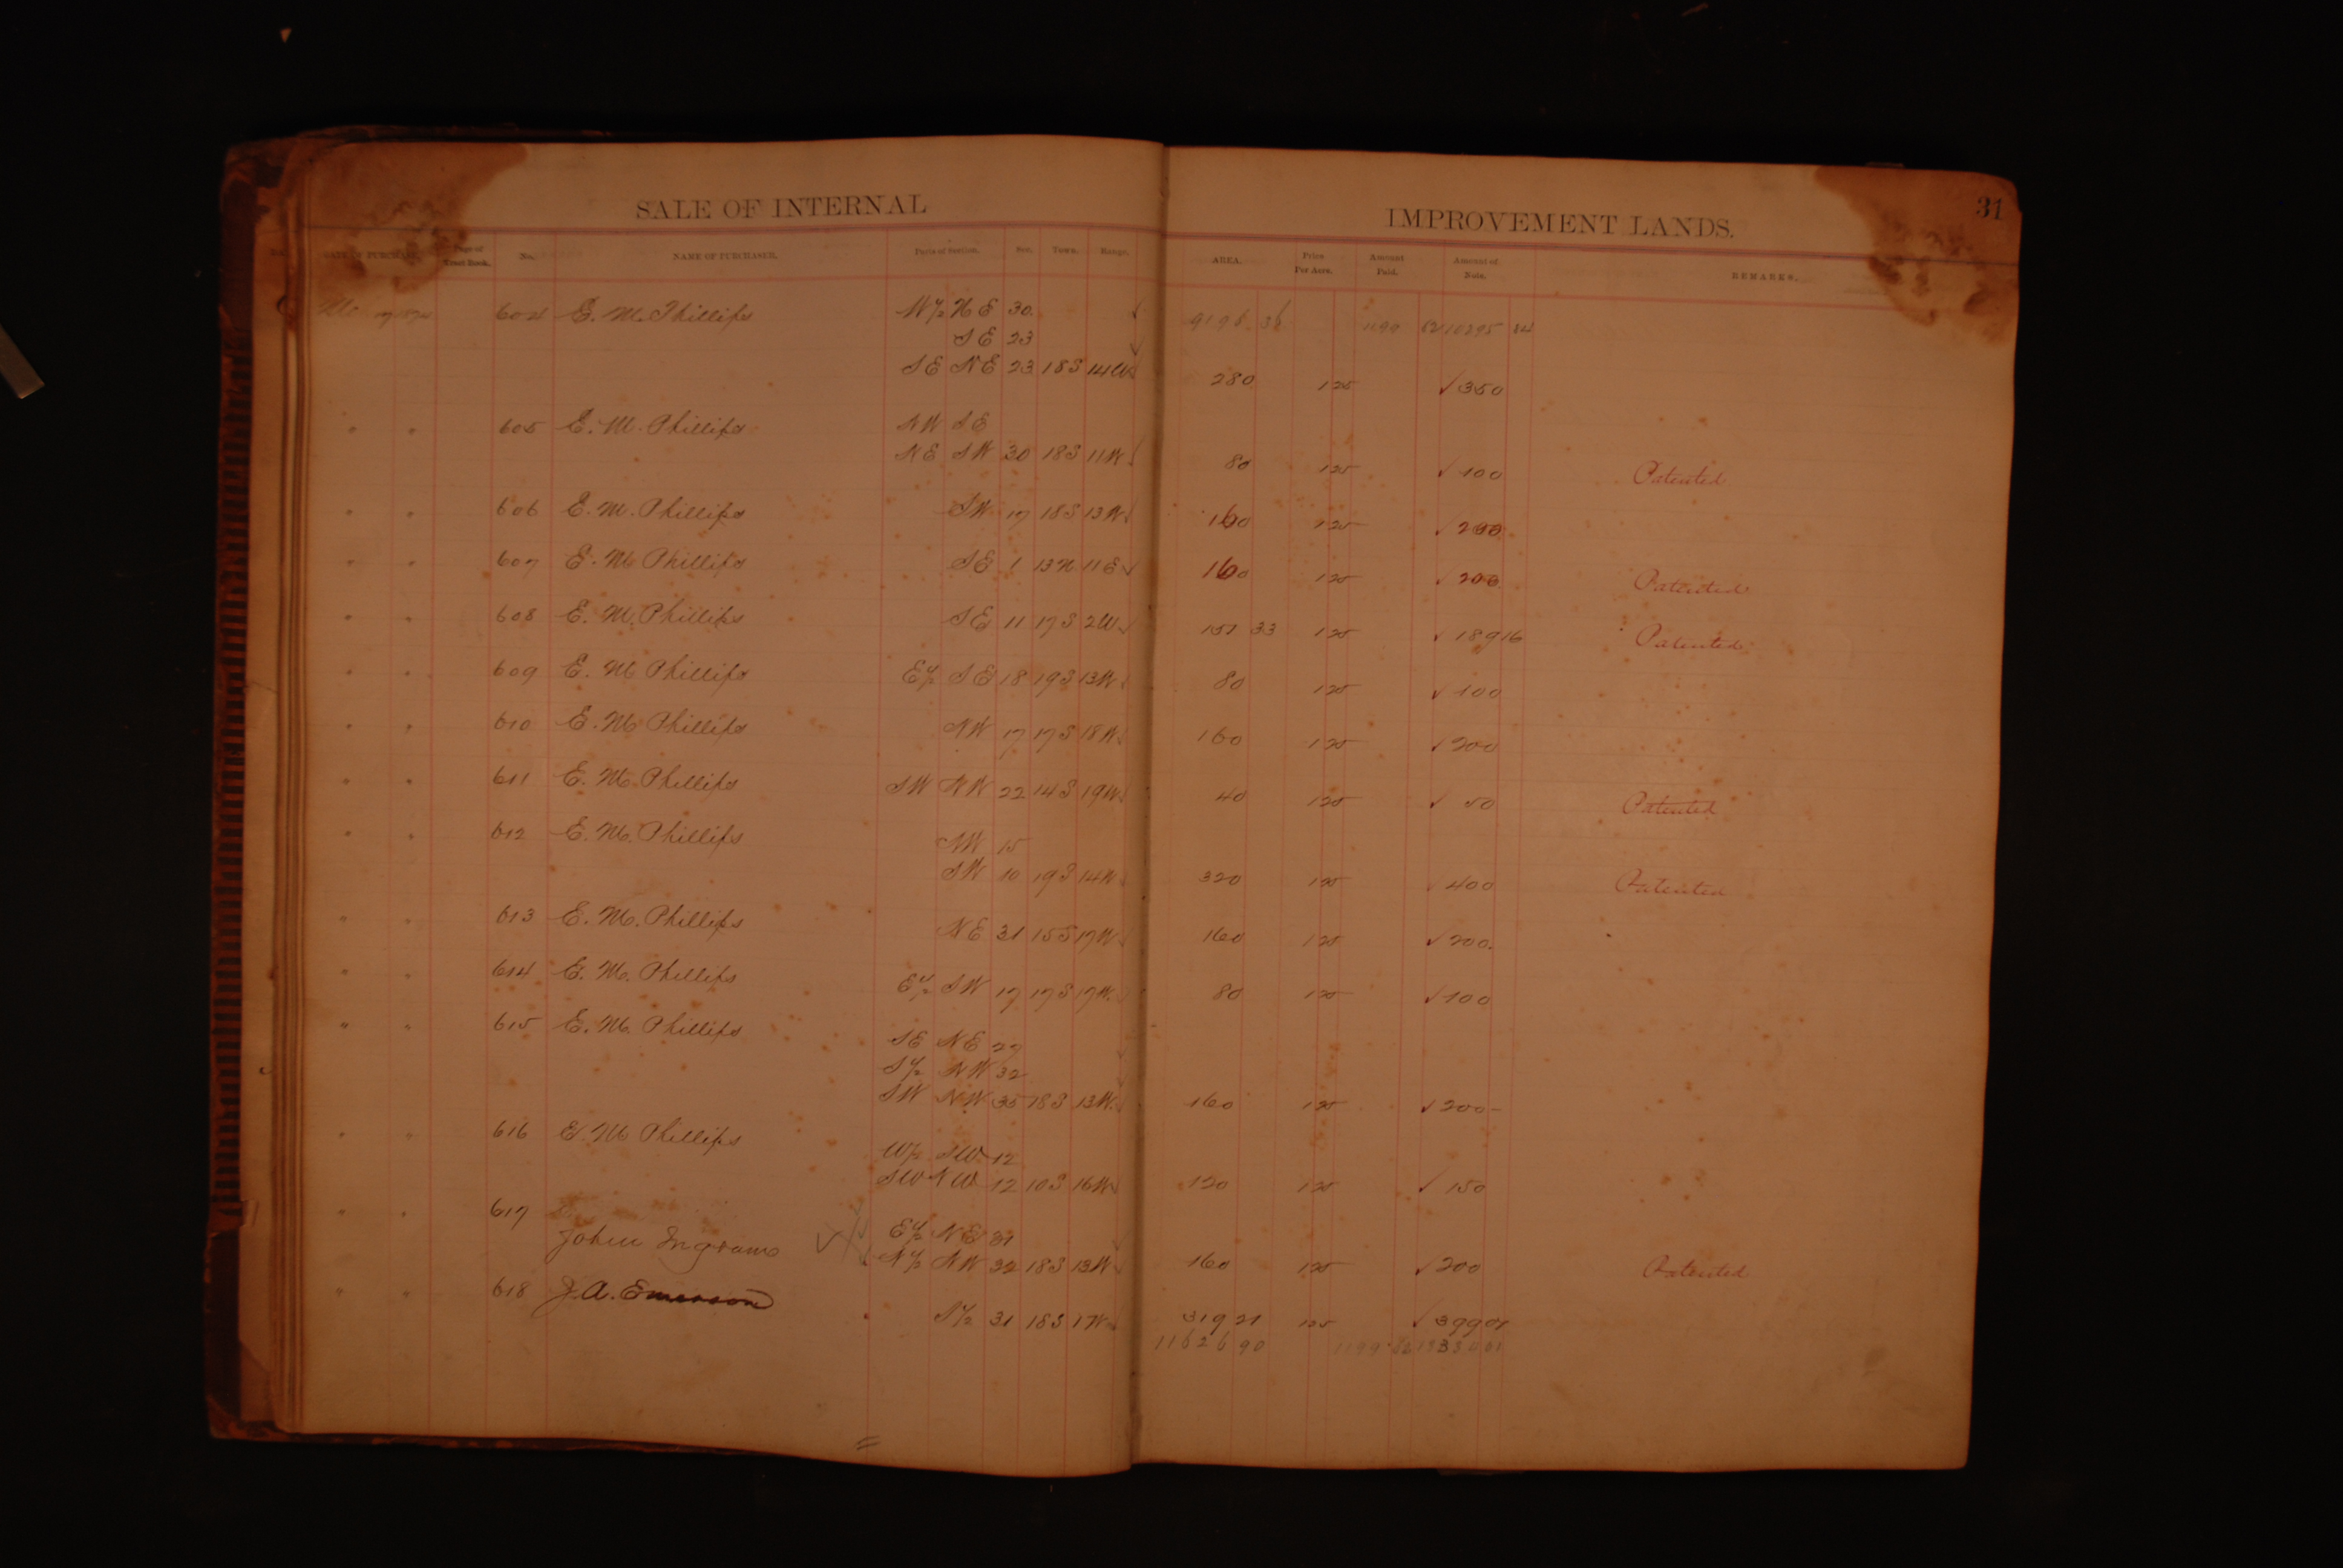 SALE OF INTERNAL IMPROVEMENT LANDS. 31
DATE OF PURCHASE. Page of Tract Book. No. NAME OF PURCHASER. Parts of Section. Sec. Town. Range. AREA. Price Per Acre. Amount Paid. Amount of Note. REMARKS.
604 E. M. Phillips W½ N E 30 ✓ 9196 36 1199 62 10295 84
S E 23 ✓
S E N E 23 18S 14W 280 125 ✓ 350
" " 605 E. M. Phillips N W S E
N E S W 30 18S 11W ✓ 80 125 ✓ 100 Patented
" " 606 E. M. Phillips S W 17 18S 13W ✓ 160 125 ✓ 200
" " 607 E. M. Phillips S E 1 13N 11E ✓ 160 125 ✓ 200 Patented
" " 608 E. M. Phillips S E 11 17S 2W ✓ 151 33 125 ✓ 189 16 Patented
" " 609 E. M. Phillips E½ S E 18 19S 13W ✓ 80 125 ✓ 100
" " 610 E. M. Phillips N W 17 17S 18W ✓ 160 125 ✓ 200
" " 611 E. M. Phillips S W N W 22 14S 19W ✓ 40 125 ✓ 50 Patented
" " 612 E. M. Phillips N W 15
S W 10 19S 14W ✓ 320 125 ✓ 400 Patented
" " 613 E. M. Phillips N E 31 15S 17W ✓ 160 125 ✓ 200.
" " 614 E. M. Phillips E½ S W 17 17S 17W ✓ 80 125 ✓ 100
" " 615 E. M. Phillips S E N E 29 ✓
S½ N W 32 ✓
S W N W 35 18S 13W ✓ 160 125 ✓ 200-
" " 616 E. M. Phillips W½ S W 12
S W N W 12 10S 16W ✓ 120 125 ✓ 150
" " 617 E½ N E 31 ✓
John Ingram N½ N W 32 18S 13W ✓ 160 125 ✓ 200 Patented
" " 618 J. A. Emerson S½ 31 18S 17W 319 21 125 ✓ 399 01
11626 90 1199